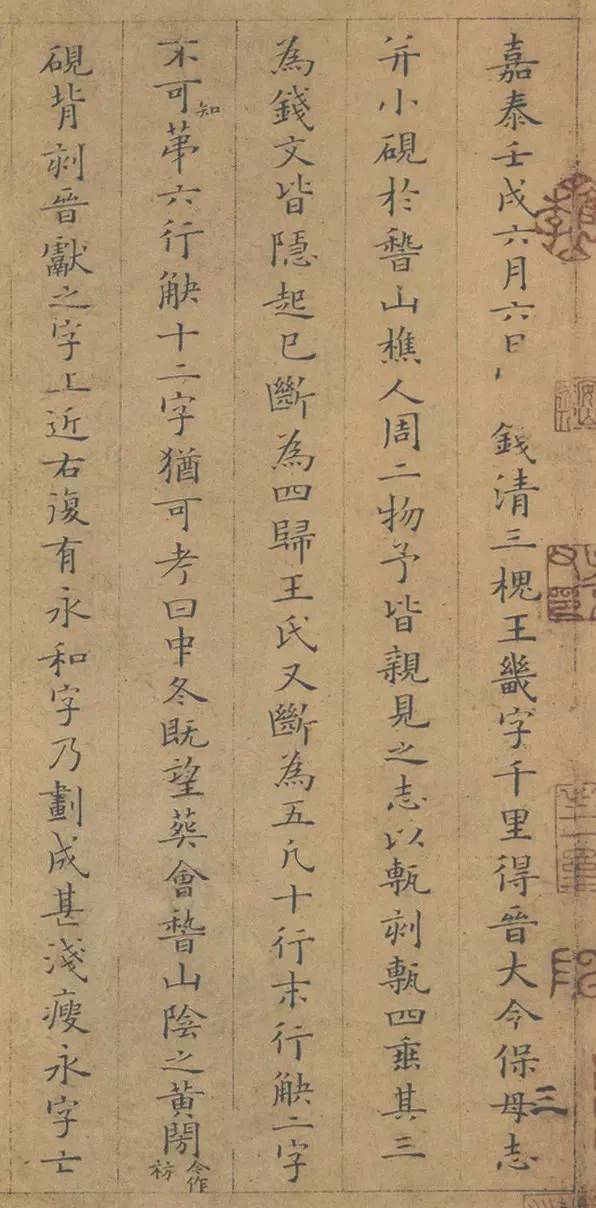 嘉泰壬戌六月六日錢清三槐王畿字千里得晉大令保母志三
并小硯於稽山樵人周二物予皆親見之志以甎刻甎四垂其三
為錢文皆隱起已斷為四歸王氏又斷為五凡十行末行缺二字
不可知第六行缺十二字猶可考曰中冬既望葬會稽山陰之黃閍令作祊
硯背刻晉獻之字上近右復有永和字乃劃成甚淺瘦永字亡